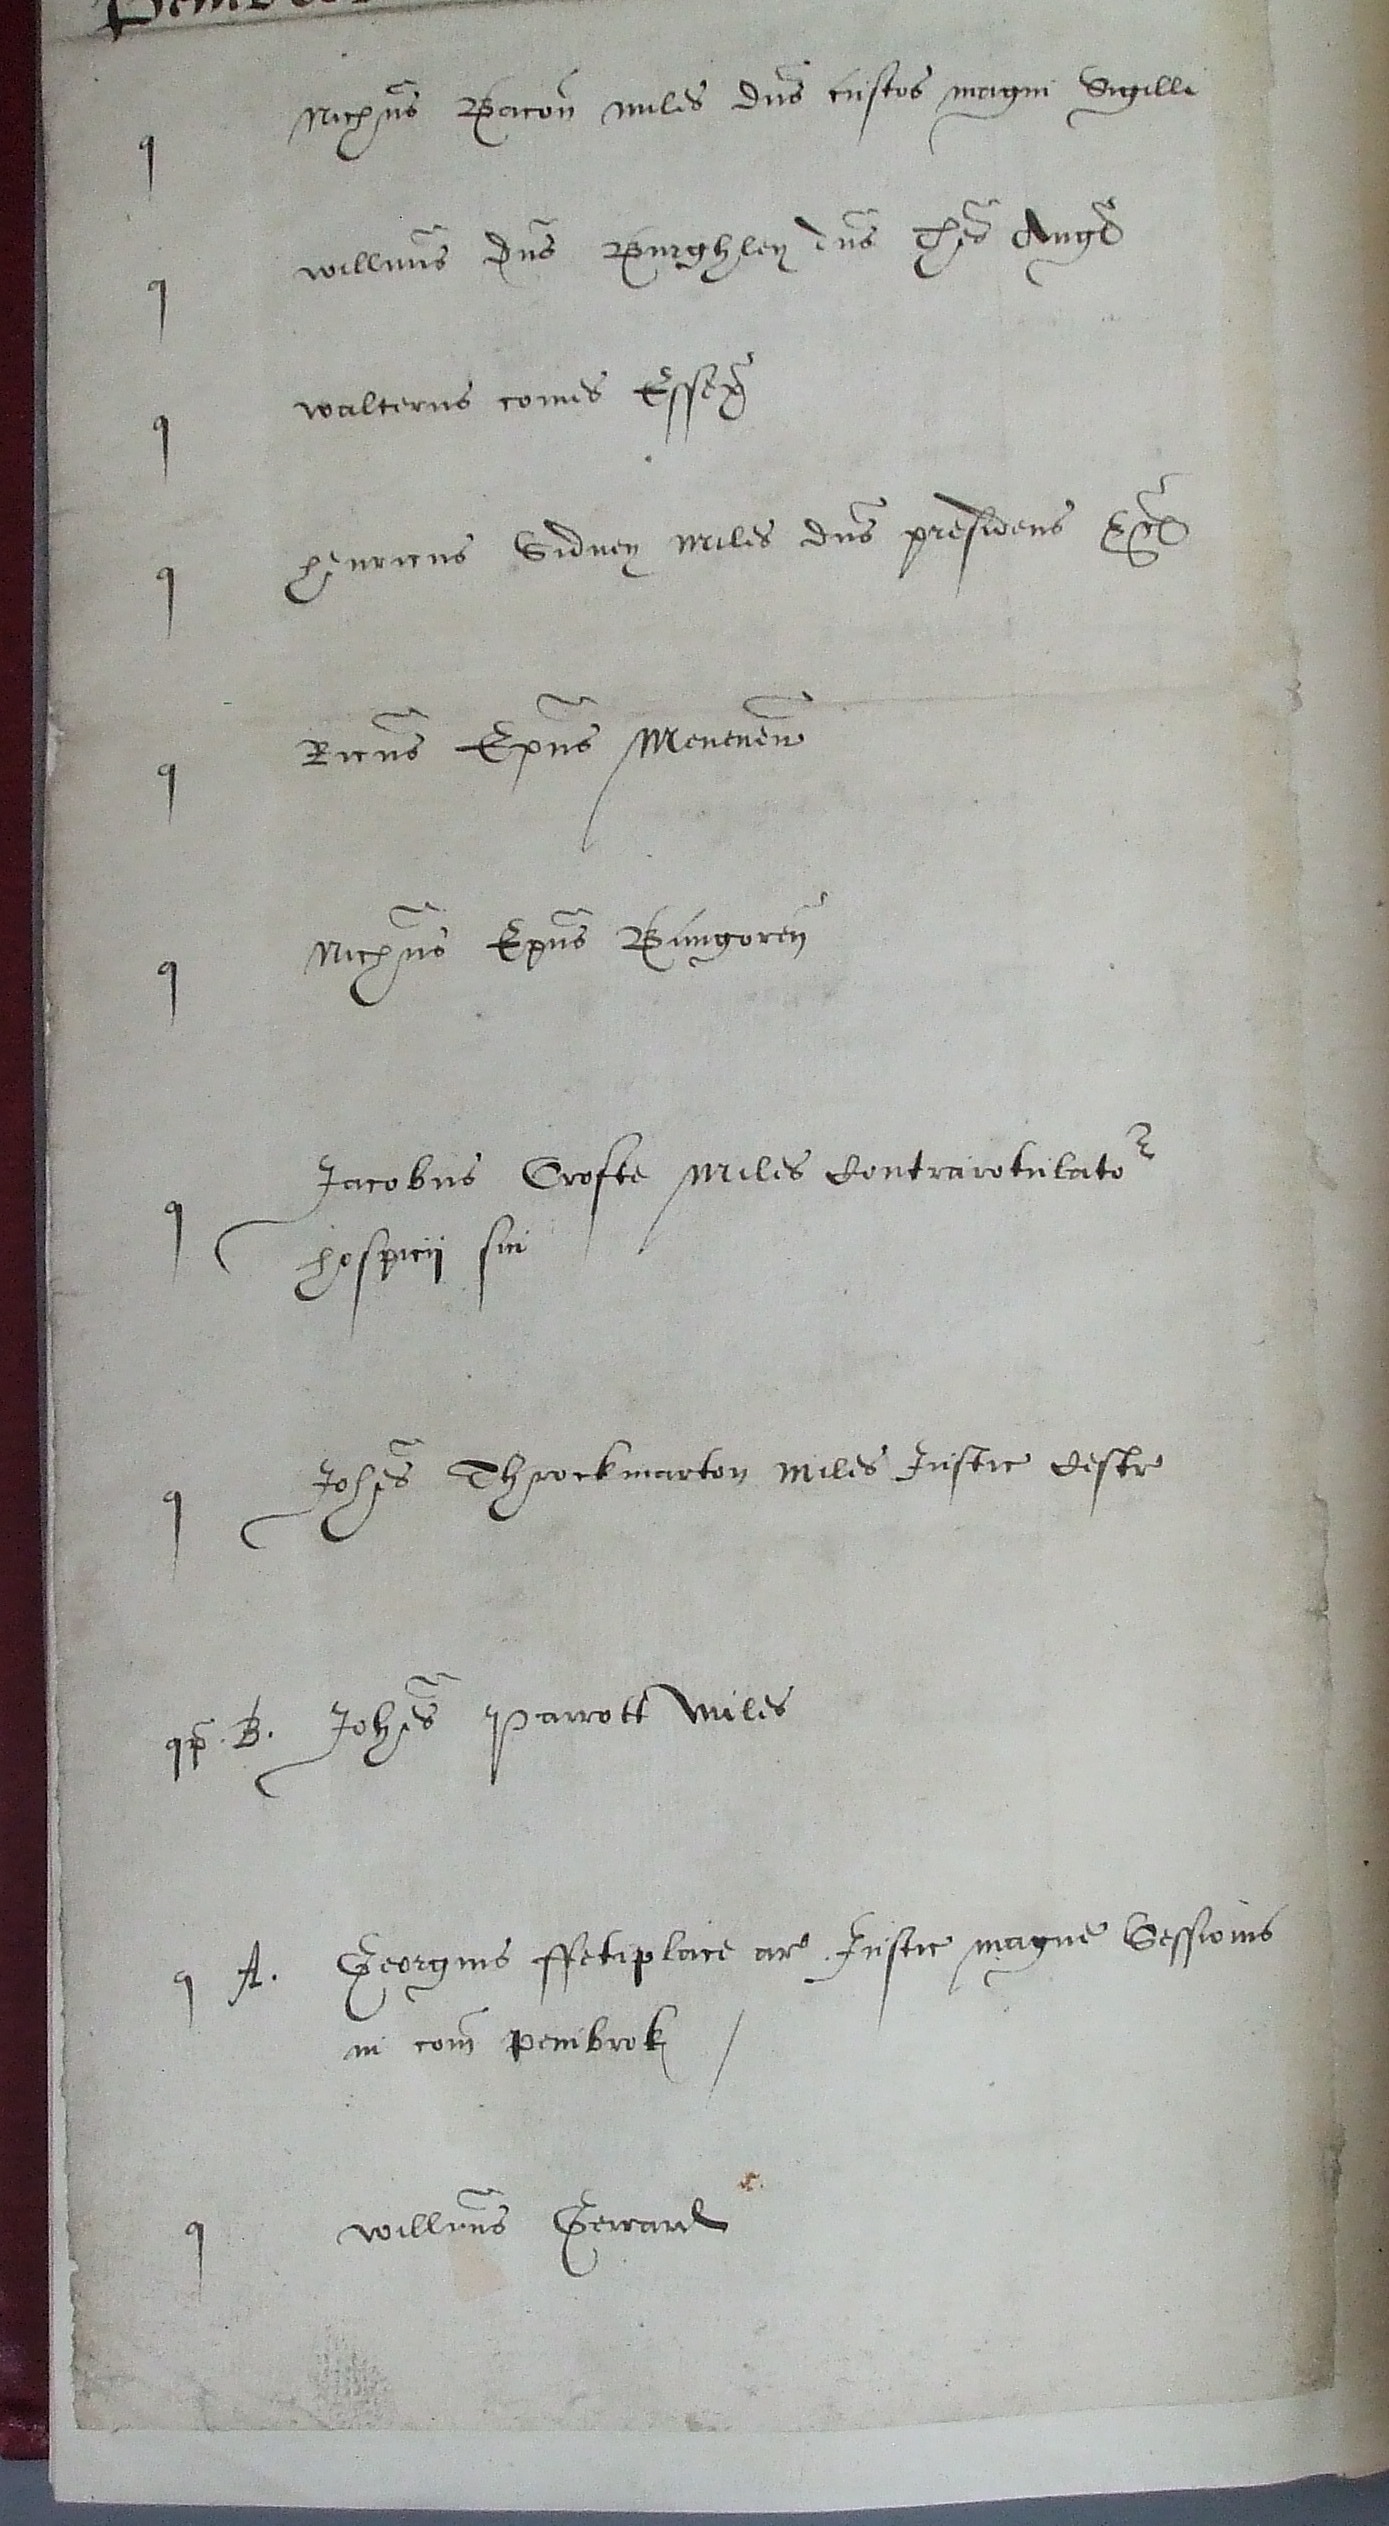 q Nichus Bacon miles dns custos magni Sigilli
q Willmus dns Burghley dns Thes Angl
q Walterus comes Essex
q Henricus Sidney miles dns presidens &c
q Ricus Epus Meneven
q Nichus Epus Bangoren
q Jacobus Crofte miles Contrarotulator
hospicii sui
q Johes Throckmarton miles Justic Cestr
qp. B. Johes Parrott miles
q A. Georgius ffetiplace ar Justic magne Sessionis
in com Pembrok /
q Willmus Gerrard